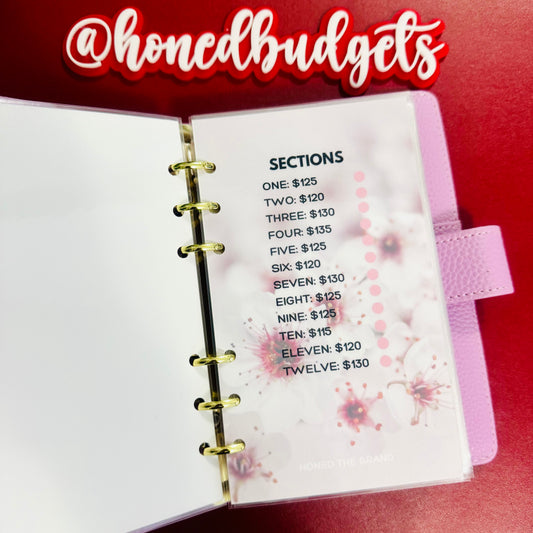 @honedbudgets
SECTIONS
ONE: $125
TWO: $120
THREE: $130
FOUR: $135
FIVE: $125
SIX: $120
SEVEN: $130
EIGHT: $125
NINE: $125
TEN: $115
ELEVEN: $120
TWELVE: $130
HONED THE BRAND